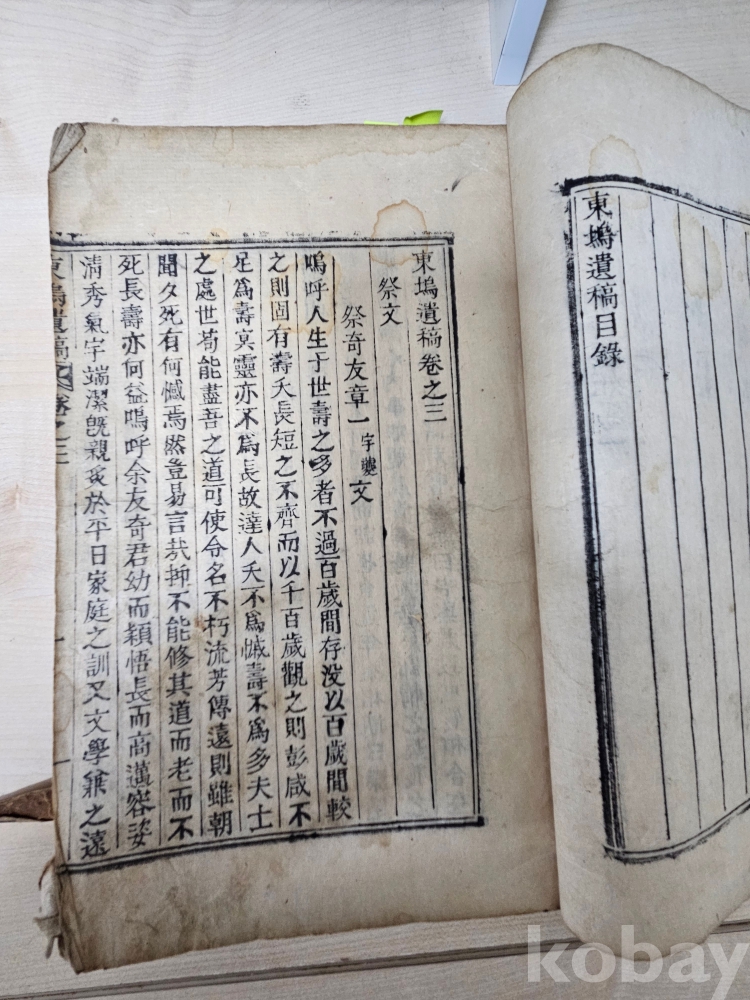 東塢遺稿目錄
東塢遺稿卷之三
祭文
祭奇友章一字夔文
嗚呼人生于世壽之多者不過百歲間存沒以百歲間較
之則固有壽夭長短之不齊而以千百歲觀之則彭咸不
足爲壽冥靈亦不爲長故達人夭不爲慽壽不爲多夫士
之處世苟能盡吾之道可使令名不朽流芳傳遠則雖朝
聞夕死有何憾焉然豈易言哉抑不能修其道而老而不
死長壽亦何益嗚呼余友奇君幼而穎悟長而高邁容姿
清秀氣宇端潔旣親炙於平日家庭之訓又文學兼之遠
東塢遺稿 卷之三
一
kobay